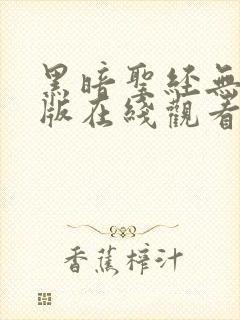 黑暗聖経無
版在綫觀看
香蕉榨汁